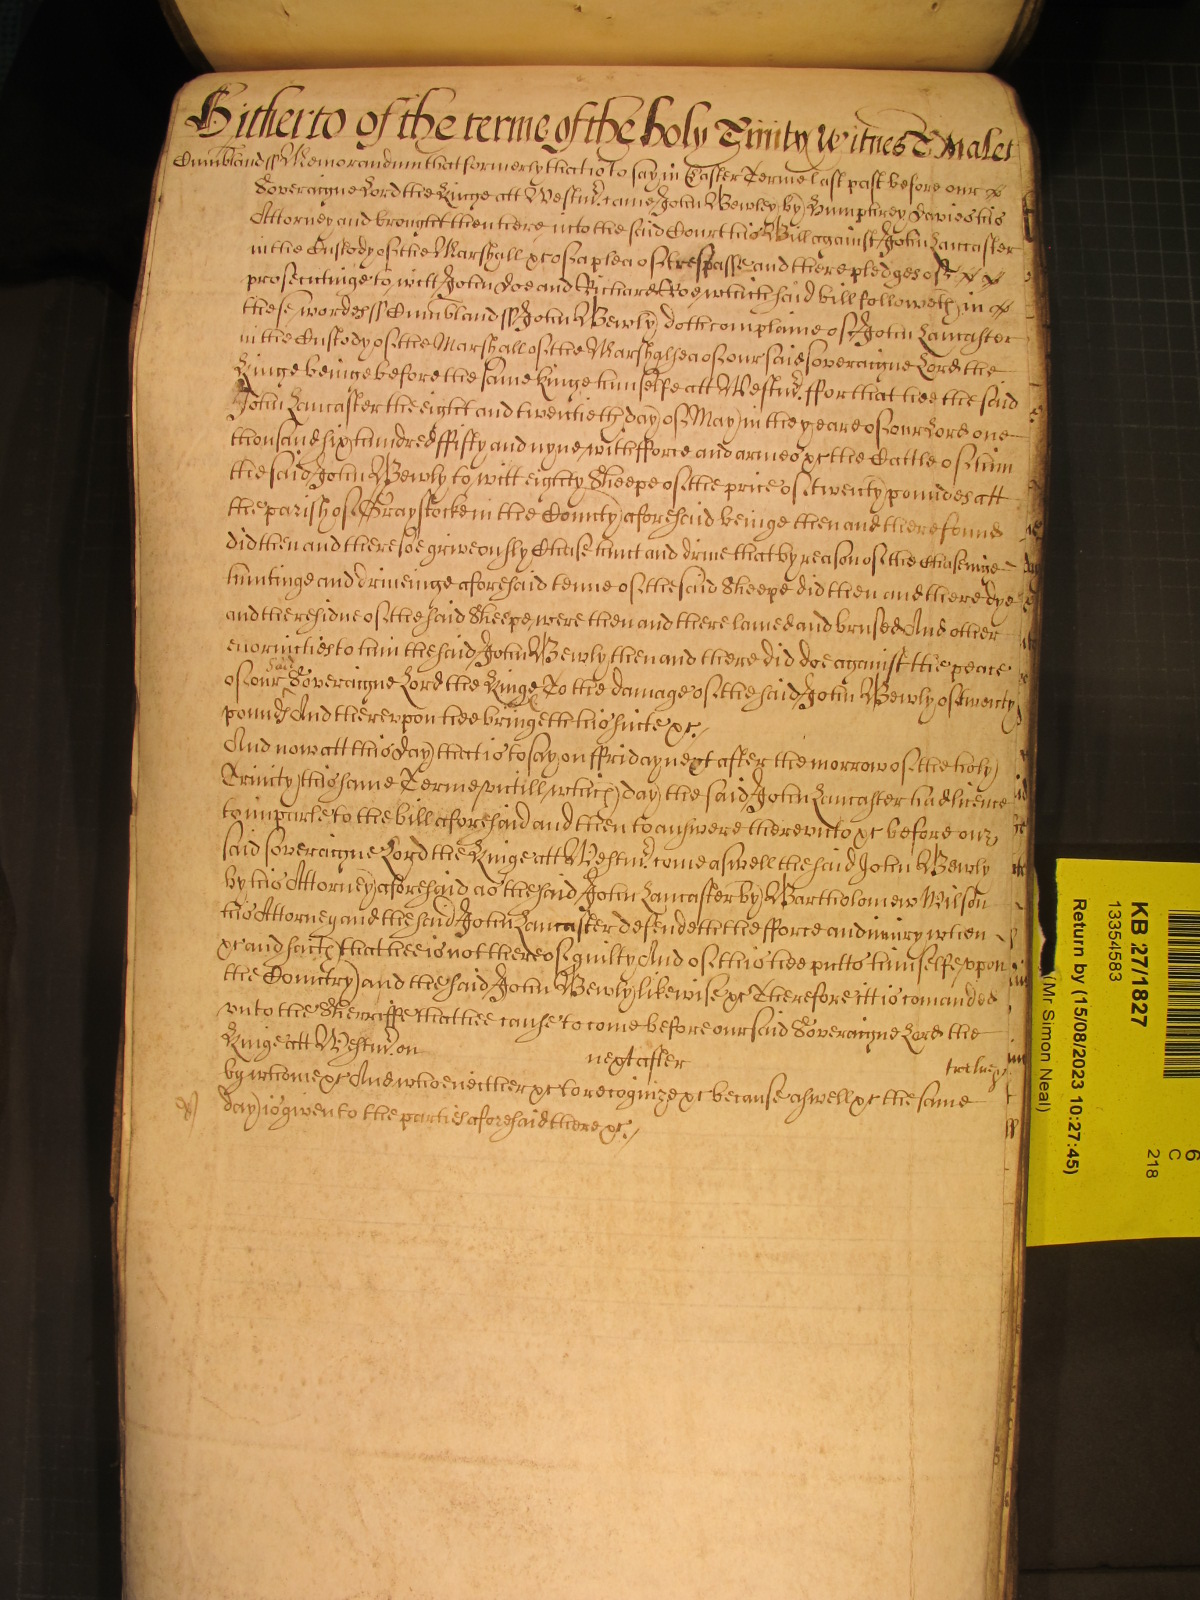 Hitherto of the terme of the holy Trinity Witnes T Malet
Cumbland ss Memorandum that formerly that is to say in Easter Terme last past before our
Soveraigne Lord the Kinge att Westmr. came John Bewley by Humphrey Davies his
Attorney and brought then there into the said Court his Bill against John Lancaster
in the Custody of the Marshall &c of a plea of trespasse and there pledges of
prosecutinge to witt John Doe and Richard Roe which said bill followeth in
these wordes ss Cumbland ss John Bewly doth complaine of John Lancaster
in the Custody of the Marshall of the Marshalsea of our said soveraigne Lord the
Kinge beinge before the same Kinge himselfe att Westmr. ffor that hee the said
John Lancaster the eight and twentieth day of May in the yeare of our Lord one
thousand six hundred ffifty and nyne with fforce and armes &c the Cattle of him
the said John Bewly to witt eighty Sheepe of the price of twenty poundes att
the parish of Graystocke in the County aforesaid beinge then and there found
did then and there soe griveously Chase hunt and drive that by reason of the Chaseinge
huntinge and driveinge aforesaid tenne of the said Sheepe did then and there dye
and the residue of the said Sheepe were then and there lamed and brused And other
enormities to him the said John Bewly then and there did doe against the peace
of our said Soveraigne Lord the Kinge To the damage of the said John Bewly of twenty
pound And thereupon hee bringeth his suite &c.
And now att this day that is to say on ffriday next after the morrow of the holy
Trinity this same Terme untill which day the said John Lancaster had licence
to imparle to the bill aforesaid and then to answere thereunto &c before our
said soveraigne Lord the Kinge att Westmr. come aswell the said John Bewly
by his Attorney aforesaid as the said John Lancaster by Bartholomew Wilson
his Attorney and the said John Lancaster defendeth the fforce and iniury when
&c and saith that hee is not thereof guilty And of this hee putts himselfe upon
the Countrey and the said John Bewly likewise &c Therefore itt is comanded
unto the Sherriffe that hee cause to come before our said Soveraigne Lord the
Kinge att Westmr. on next after twelve
by whome &c And who neither &c to recognize &c because aswell &c the same
day is given to the parties aforesaid there &c.
KB 27/1827
13354583
Return by (15/08/2023 10:27:45)
(Mr Simon Neal)
6
C
218